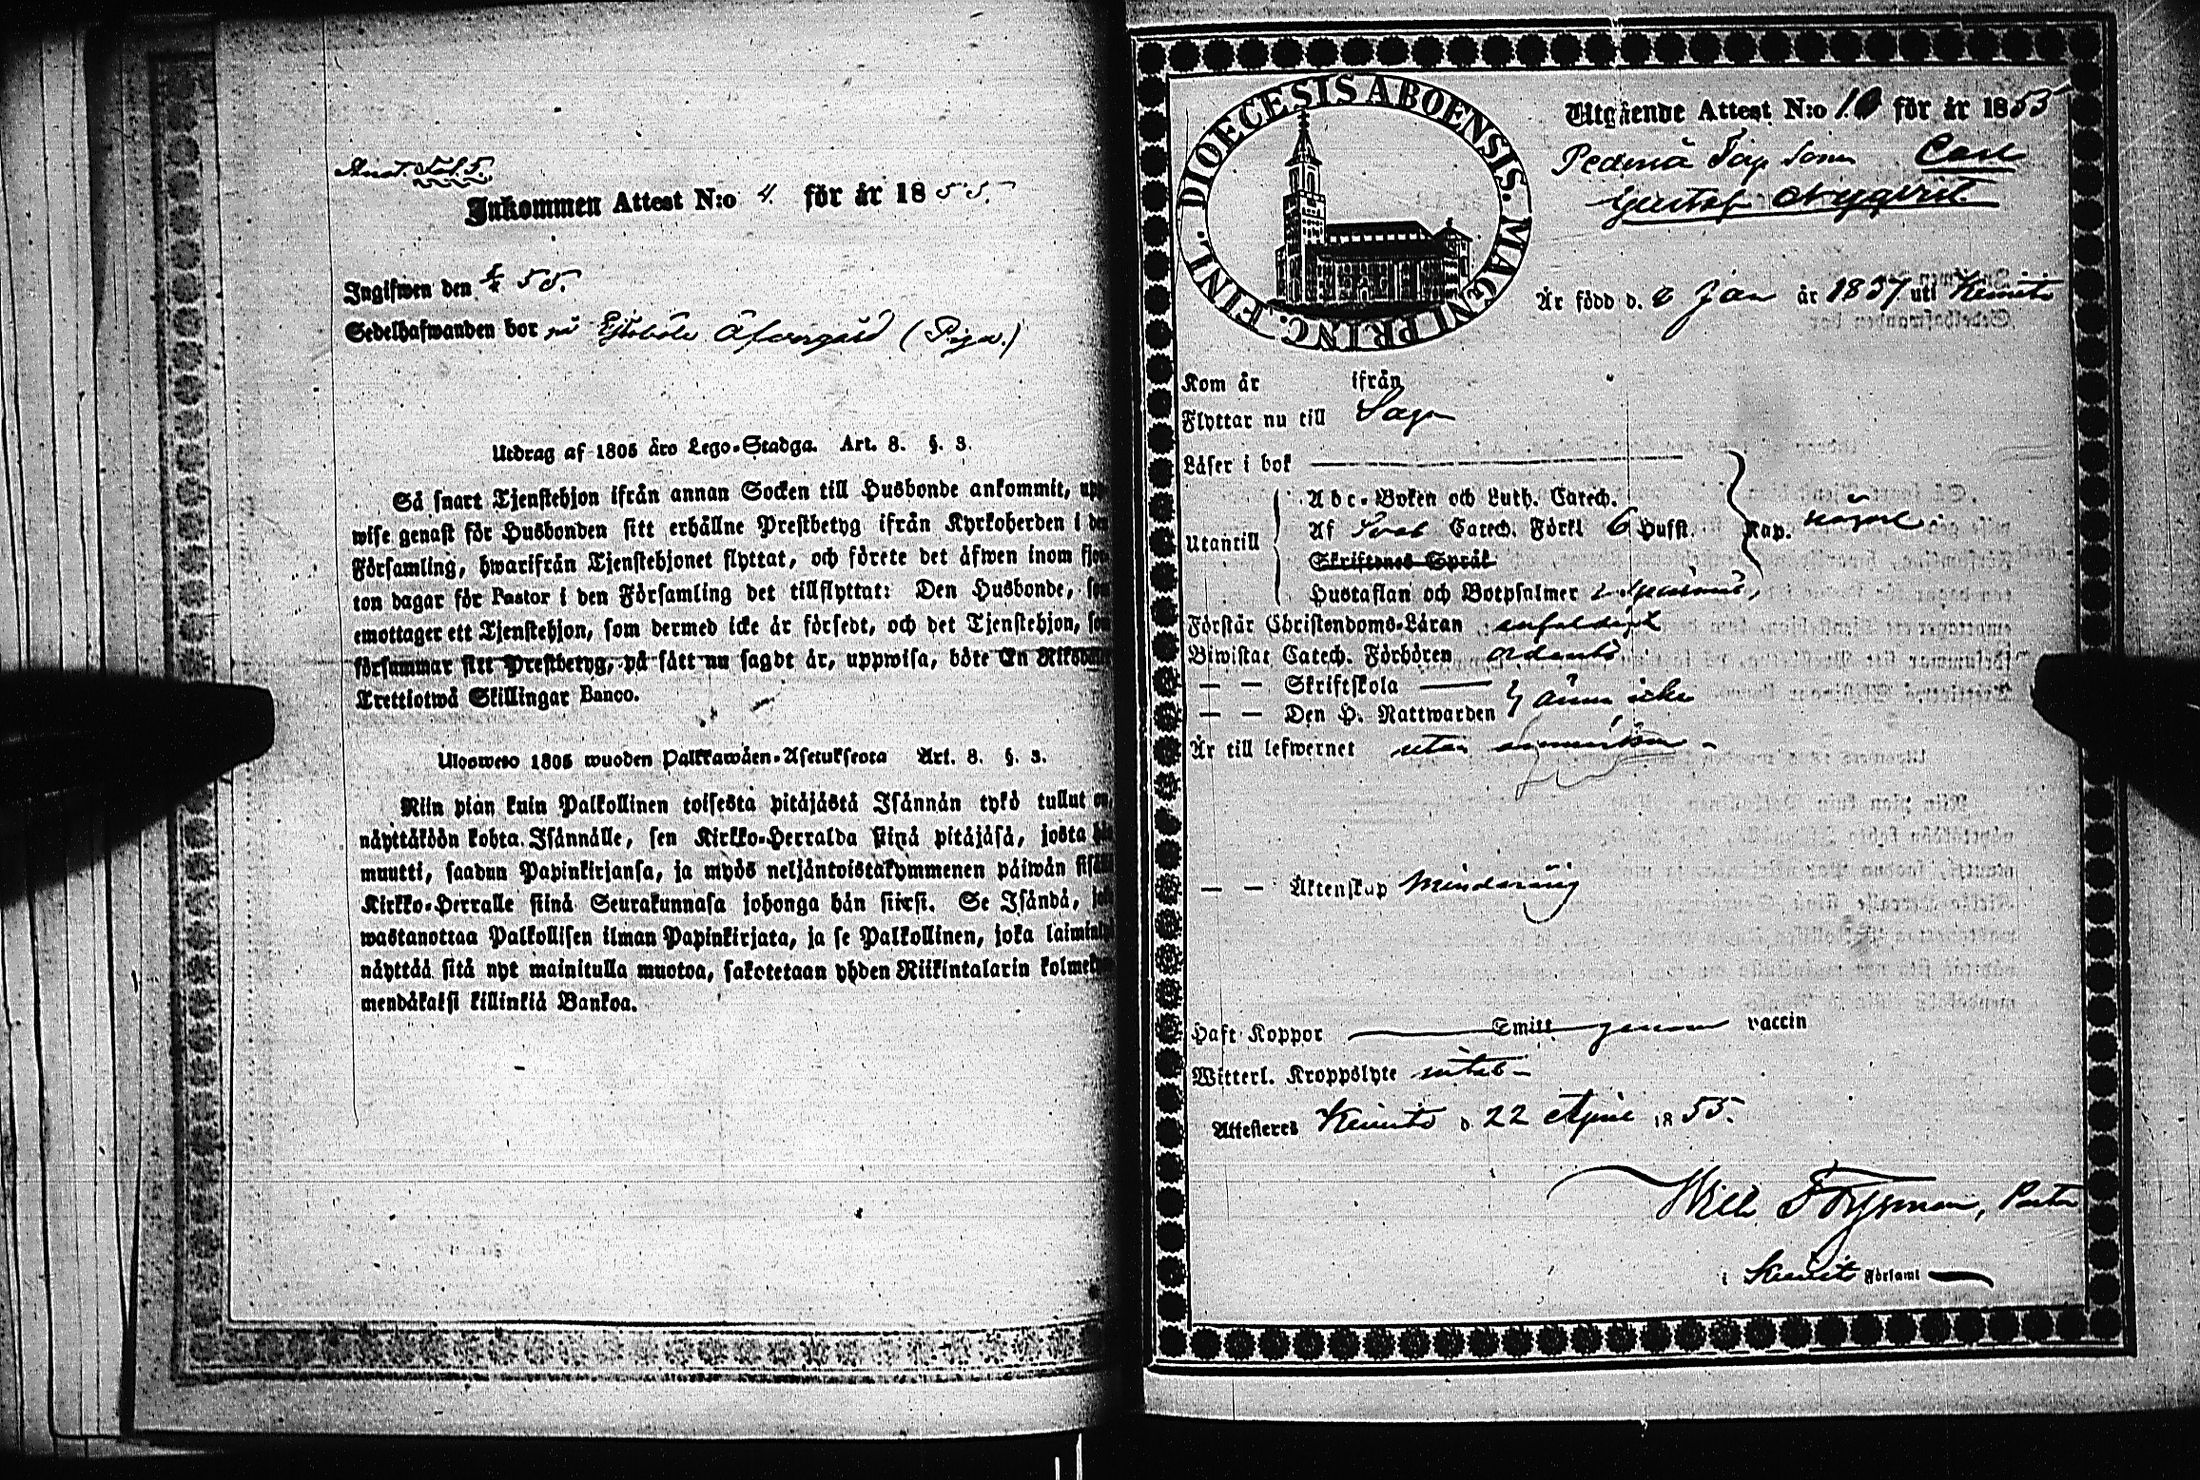 Anot. Fol. 5.
Inkommen Attest N:o 4. för år 1855.
Ingifwen den 55.
Sedelhafwanden bor på Öfvergård (Piga.)
Utdrag af 1805 års Lego-Stadga. Art. 8. §. 3.
Så snart Tjenstehjon ifrån annan Socken till Husbonde ankommit, upp-
wise genast för Husbonden sitt erhållne Prestbetyg ifrån Kyrkoherden i den
Församling, hwarifrån Tjenstehjonet flyttat, och förete det äfwen inom fjor-
ton dagar för Pastor i den Församling det tillflyttat: Den Husbonde, som
emottager ett Tjenstehjon, som dermed icke är försedt, och det Tjenstehjon, som
försummar sitt Prestbetyg, på sätt nu sagdt är, uppwisa, böte En Riksdaler
Trettiotwå Skillingar Banco.
Ulosweto 1805 wuoden Palkkawäen-Asetuksesta Art. 8. §. 3.
Niin pian kuin Palkollinen toisesta pitäjästä Isännän tykö tullut on,
näyttäköön kohta Isännälle, sen Kirkko-Herralda siinä pitäjäsä, josta hän
muutti, saadun Papinkirjansa, ja myös neljäntoistakymmenen päiwän sisällä
Kirkko-Herralle siinä Seurakunnasa johonga hän siirsi. Se Isändä, joka
wastanottaa Palkollisen ilman Papinkirjata, ja se Palkollinen, joka laiminlyö
näyttää sitä nyt mainitulla muotoa, sakotetaan yhden Riikintalarin kolmekym-
mendäkaksi killinkiä Bankoa.
DIOECESIS ABOENSIS. MAGNI PRINC. FINL.
Utgående Attest N:o 10 för år 1855
Pedernå Torp Sonen Carl
Gustaf Nyqvist
Är född d. 2 Jan år 1837 uti Kimito
Kom år ifrån
Flyttar nu till Sagu
Läser i bok
Utantill
Abc-Boken och Luth. Catech.
Af Sveb Catech. Förkl 6 Hufst.
Skriftenes Språk
Hustaflan och Botpsalmer
Kap. någorl.
Förstår Christendoms-Läran enfaldigt
Biwistat Catech. Förhören ordentl.
— — Skriftskola
— — Den H. Nattwarden ännu icke
Är till lefwernet utan anmärkn –
— — Äktenskap Minderårig
Haft Koppor Smitt genom vaccin
Witterl. Kroppslyte intet –
Attesteres Kimito d. 22 April 1855.
Wilh. Forssman, Pastor
i Kimito Församl